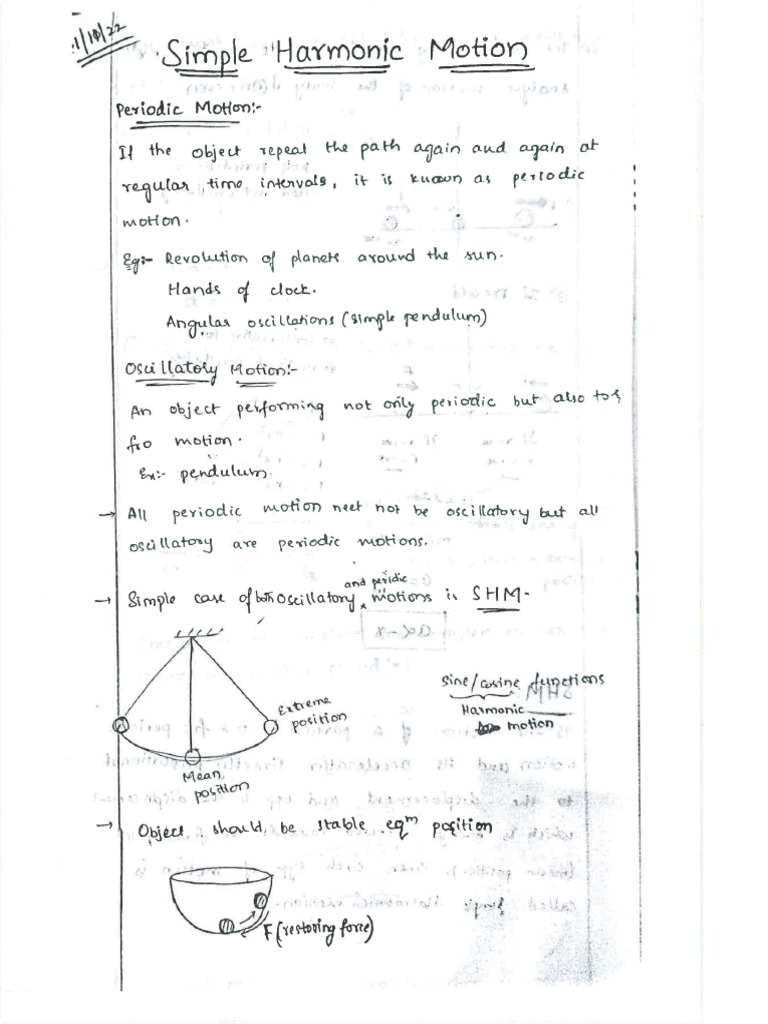 1/10/22
Simple Harmonic Motion
Periodic Motion:-
If the object repeat the path again and again at
regular time intervals, it is known as periodic
motion.
Eg:- Revolution of planets around the sun.
Hands of clock.
Angular oscillations (simple pendulum)
Oscillatory Motion:-
An object performing not only periodic but also to &
fro motion.
Ex:- pendulum.
→ All periodic motion neet not be oscillatory but all
oscillatory are periodic motions.
and peridic
→ Simple case of both oscillatory motions is SHM-
Extreme
position
Mean
position
Sine/cosine functions
Harmonic
motion
→ Object should be stable eqm position
F (restoring force)